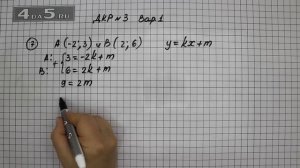 4ДSУ5
.RU
ДКР №3 Вар 1
⑦ A(-2;3) и B(2;6) y=kx+m
A: 3=-2k+m
B: + 6=2k+m
9=2m